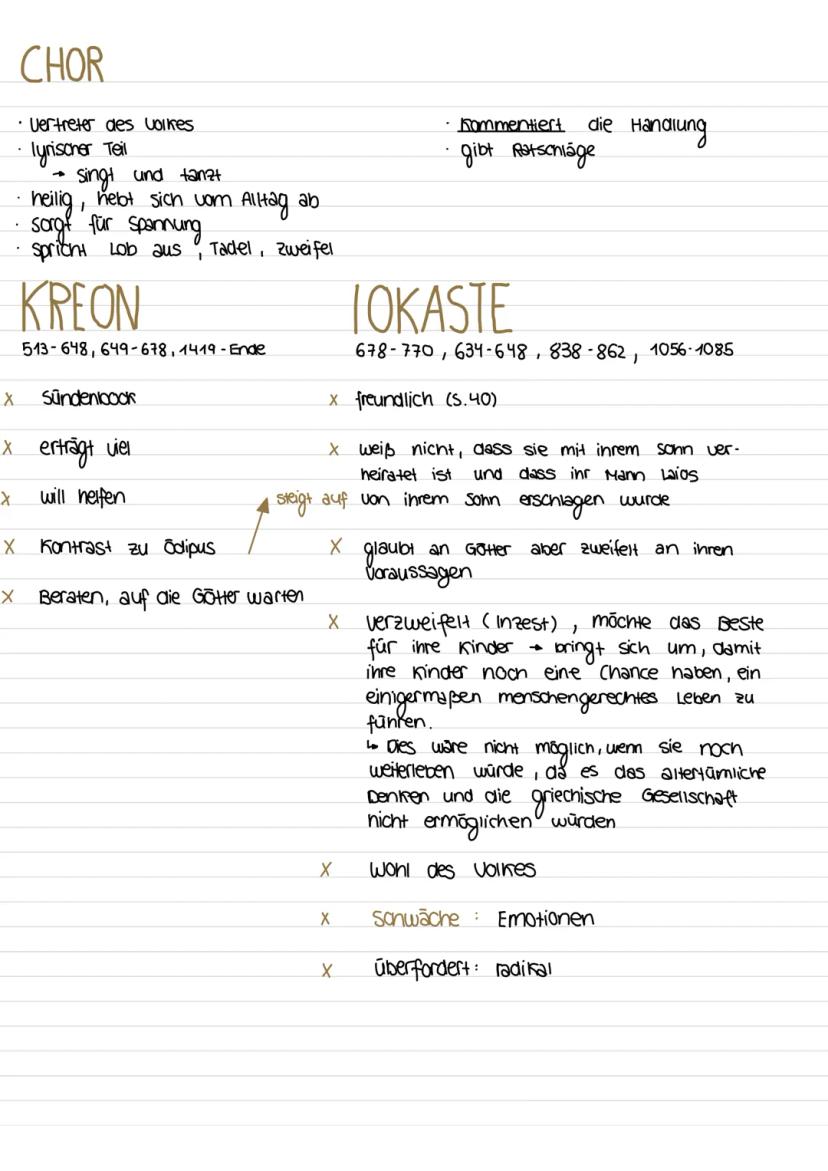 CHOR
· Vertreter des Volkes
· lyrischer Teil
→ singt und tanzt
· heilig, hebt sich vom Alltag ab
· sorgt für Spannung
· spricht Lob aus, Tadel, Zweifel
· Kommentiert die Handlung
· gibt Ratschläge
KREON
513-648, 649-678, 1419-Ende
x Sündenbock
x erträgt viel
x will helfen
x Kontrast zu Ödipus
steigt auf
x Beraten, auf die Götter warten
IOKASTE
678-770, 634-648, 838-862, 1056-1085
x freundlich (S.40)
x weiß nicht, dass sie mit ihrem Sohn ver-
heiratet ist und dass ihr Mann Laios
von ihrem Sohn erschlagen wurde
x glaubt an Götter aber zweifelt an ihren
Voraussagen
x verzweifelt (Inzest), möchte das Beste
für ihre Kinder → bringt sich um, damit
ihre Kinder noch eine Chance haben, ein
einigermaßen menschengerechtes Leben zu
führen.
↳ Dies wäre nicht möglich, wenn sie noch
weiterleben würde, da es das altertümliche
Denken und die griechische Gesellschaft
nicht ermöglichen würden
x Wohl des Volkes
x Schwäche: Emotionen
x überfordert: radikal